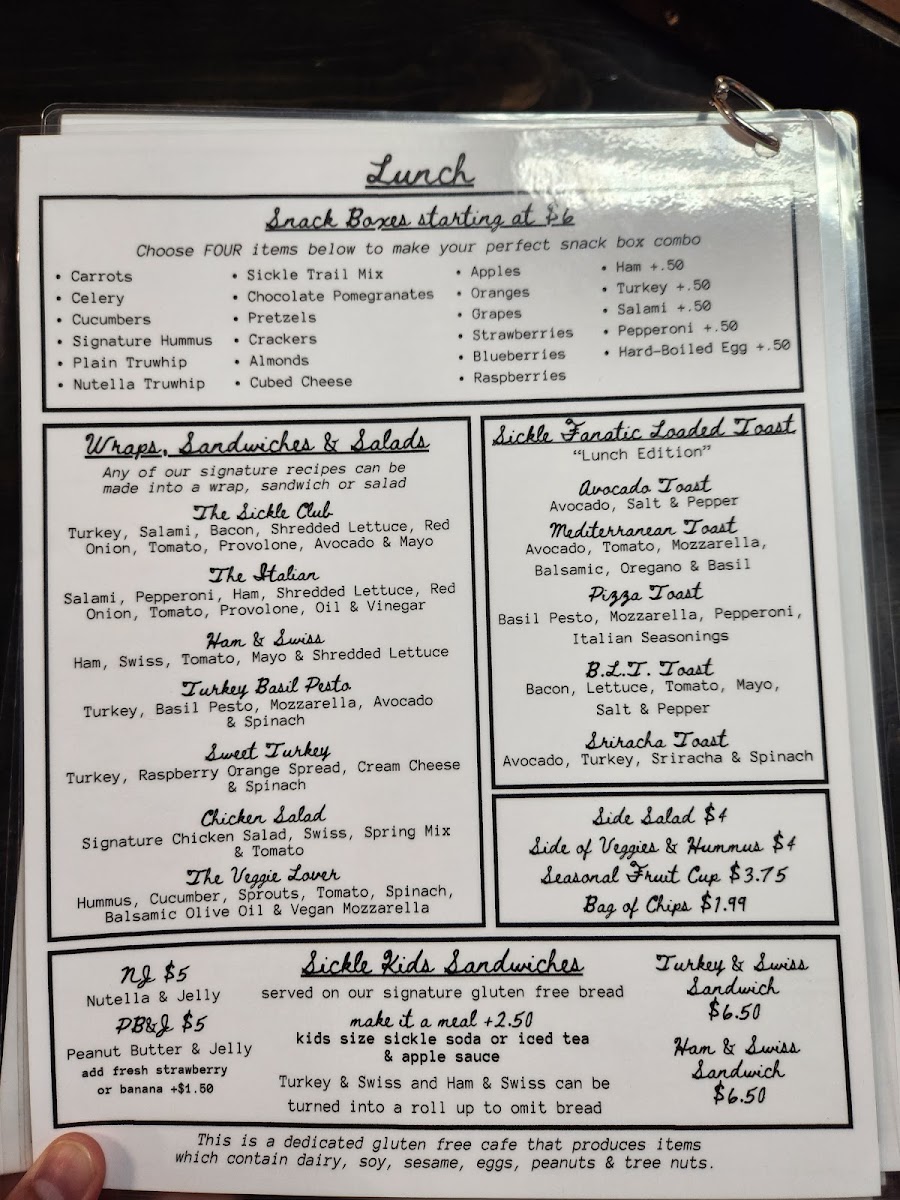 Lunch
Snack Boxes starting at $6
Choose FOUR items below to make your perfect snack box combo
• Carrots
• Celery
• Cucumbers
• Signature Hummus
• Plain Truwhip
• Nutella Truwhip
• Sickle Trail Mix
• Chocolate Pomegranates
• Pretzels
• Crackers
• Almonds
• Cubed Cheese
• Apples
• Oranges
• Grapes
• Strawberries
• Blueberries
• Raspberries
• Ham +.50
• Turkey +.50
• Salami +.50
• Pepperoni +.50
• Hard-Boiled Egg +.50
Wraps, Sandwiches & Salads
Any of our signature recipes can be
made into a wrap, sandwich or salad
The Sickle Club
Turkey, Salami, Bacon, Shredded Lettuce, Red
Onion, Tomato, Provolone, Avocado & Mayo
The Italian
Salami, Pepperoni, Ham, Shredded Lettuce, Red
Onion, Tomato, Provolone, Oil & Vinegar
Ham & Swiss
Ham, Swiss, Tomato, Mayo & Shredded Lettuce
Turkey Basil Pesto
Turkey, Basil Pesto, Mozzarella, Avocado
& Spinach
Sweet Turkey
Turkey, Raspberry Orange Spread, Cream Cheese
& Spinach
Chicken Salad
Signature Chicken Salad, Swiss, Spring Mix
& Tomato
The Veggie Lover
Hummus, Cucumber, Sprouts, Tomato, Spinach,
Balsamic Olive Oil & Vegan Mozzarella
Sickle Fanatic Loaded Toast
"Lunch Edition"
Avocado Toast
Avocado, Salt & Pepper
Mediterranean Toast
Avocado, Tomato, Mozzarella,
Balsamic, Oregano & Basil
Pizza Toast
Basil Pesto, Mozzarella, Pepperoni,
Italian Seasonings
B.L.T. Toast
Bacon, Lettuce, Tomato, Mayo,
Salt & Pepper
Sriracha Toast
Avocado, Turkey, Sriracha & Spinach
Side Salad $4
Side of Veggies & Hummus $4
Seasonal Fruit Cup $3.75
Bag of Chips $1.99
NJ $5
Nutella & Jelly
PB&J $5
Peanut Butter & Jelly
add fresh strawberry
or banana +$1.50
Sickle Kids Sandwiches
served on our signature gluten free bread
make it a meal +2.50
kids size sickle soda or iced tea
& apple sauce
Turkey & Swiss and Ham & Swiss can be
turned into a roll up to omit bread
Turkey & Swiss
Sandwich
$6.50
Ham & Swiss
Sandwich
$6.50
This is a dedicated gluten free cafe that produces items
which contain dairy, soy, sesame, eggs, peanuts & tree nuts.